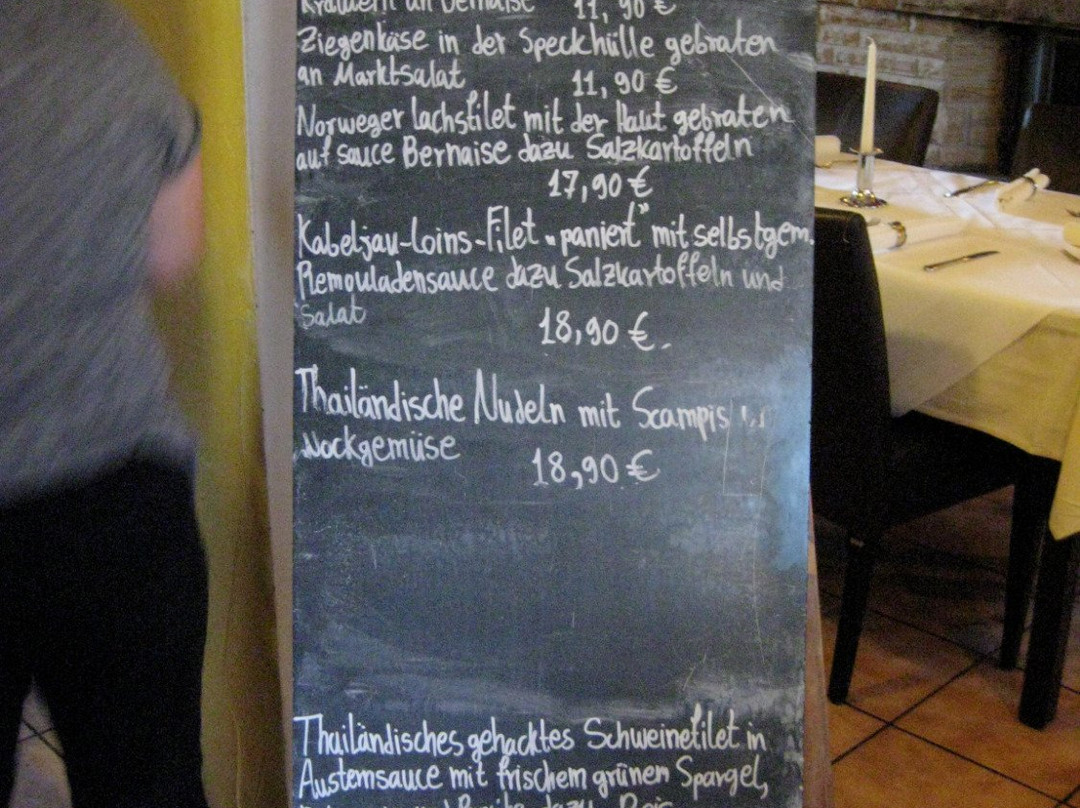 Kräutern an Bernaise 11,90 €
Ziegenkäse in der Speckhülle gebraten
an Marktsalat 11,90 €
Norweger Lachsfilet mit der Haut gebraten
auf sauce Bernaise dazu Salzkartoffeln
17,90 €
Kabeljau-Loins-Filet "paniert" mit selbstgem.
Remouladensauce dazu Salzkartoffeln und
Salat 18,90 €.
Thailändische Nudeln mit Scampis
Wockgemüse 18,90 €
Thailändisches gehacktes Schweinefilet in
Austernsauce mit frischem grünen Spargel,
dazu Reis